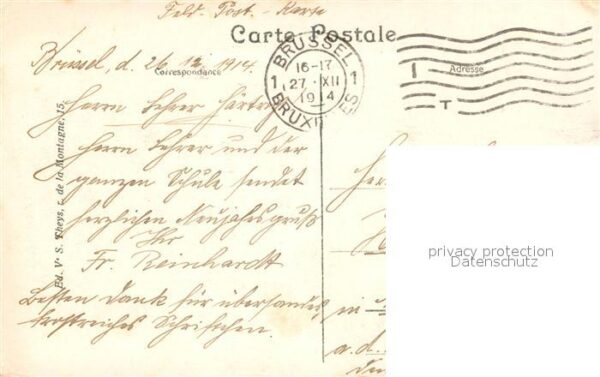 Feld-Post-Karte
Carte Postale
Correspondance
Adresse
BRÜSSEL
1 16-17 1
27 XII
1914
BRUXELLES
T
Brüssel, d. 26. 12. 1914.
Herrn Lehrer
Herrn Lehrer und der
ganzen Schule sendet
herzlichen Neujahrsgruß
Ihr
Fr. Reinhardt
Besten Dank für übersandtes
trostreiches Schriftchen.
Ed. V S. Theys, r. de la Montagne, 15.
in
a.d.
privacy protection
Datenschutz